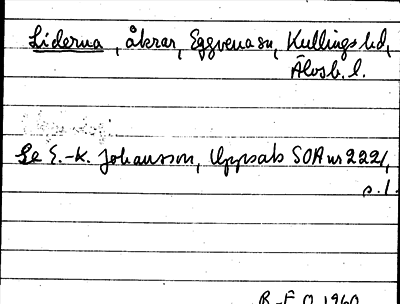 Liderna, åkrar, Eggvena sn, Kullings hd,
Älvsb. l.
Se E.-K. Johansson, Uppsats SOA nr 2221,
s. 1.
R-F.O. 1960